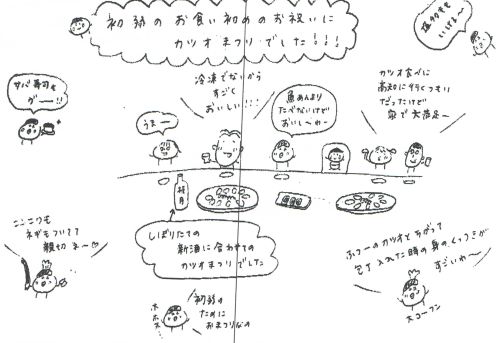 初節のお食い初めのお祝いに
カツオまつりでした!!!
塩タタキも
いけるー
サバ寿司も
がー!!
冷凍でないから
すごく
おいしい!!!
うまー
魚あんまり
たべないけど
おいしーわー
カツオ食べに
高知に行くつもり
だったけど
家で大満足ー
桂月
しぼりたての
新酒に合わせての
カツオまつりでした
ニンニクも
ネギもついてて
親切ネー
ホホホ
初節の
ために
おまつりなの
ふつーのカツオとちがって
包丁入れた時の身のくっつきが
すごいわ〜
大コーフン